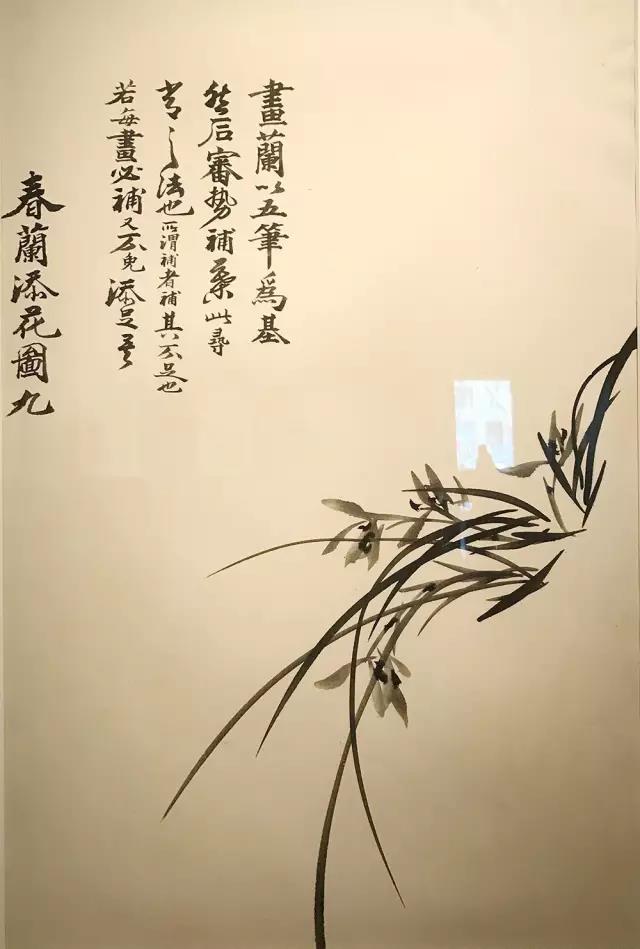 畫蘭以五筆為基
然后審勢補葉此尋
常之法也所謂補者補其不足也
若每畫必補又不免添足矣
春蘭添花圖九